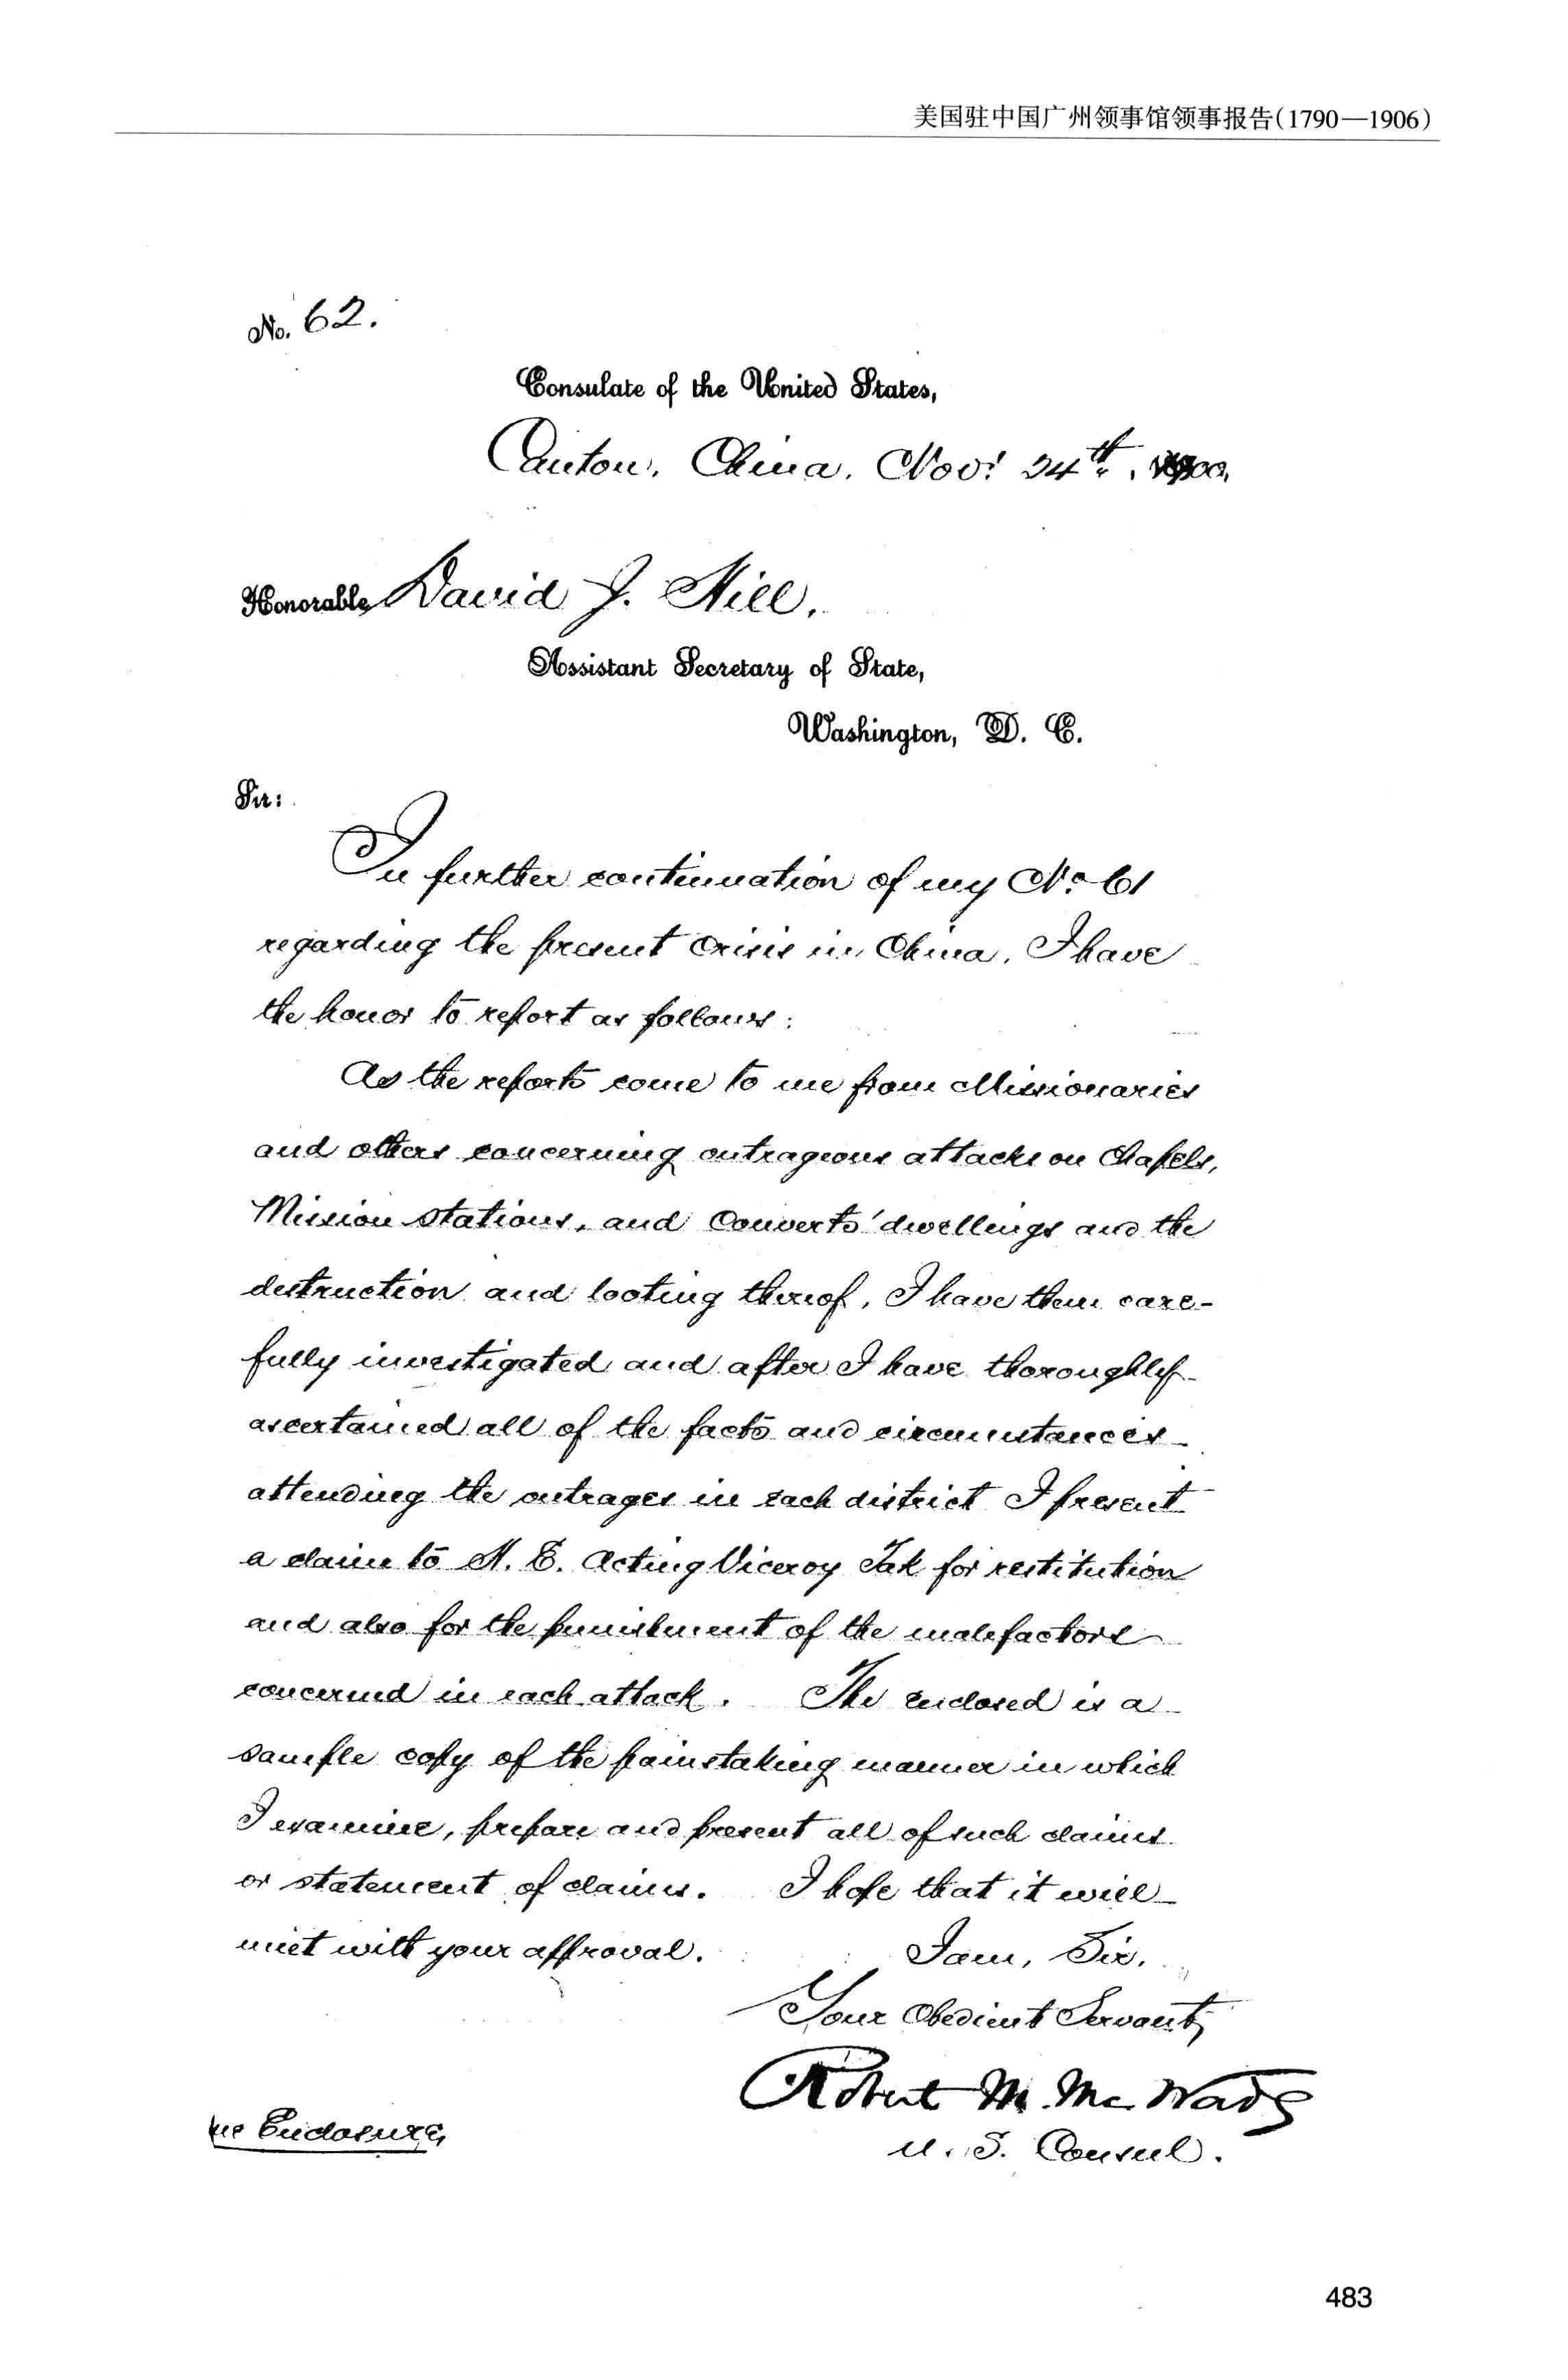 美国驻中国广州领事馆领事报告(1790—1906)
No. 62.
Consulate of the United States,
Canton, China, Nov: 24th, 1900,
Honorable David J. Hill,
Assistant Secretary of State,
Washington, D. C.
Sir:
In further continuation of my No 61
regarding the present Crisis in China, I have
the honor to report as follows:
As the reports come to me from Missionaries
and others concerning outrageous attacks on Chapels,
Mission Stations, and Converts' dwellings and the
destruction and looting thereof, I have them care-
fully investigated and after I have thoroughly
ascertained all of the facts and circumstances
attending the outrages in each district I present
a claim to H. E. Acting Viceroy Tak for restitution
and also for the punishment of the malefactors
concerned in each attack. The enclosed is a
sample copy of the painstaking manner in which
I examine, prepare and present all of such claims
or statement of claims. I hope that it will
meet with your approval. I am, Sir,
Your Obedient Servant,
Robert M. McWade
U. S. Consul.
Enclosure,
483